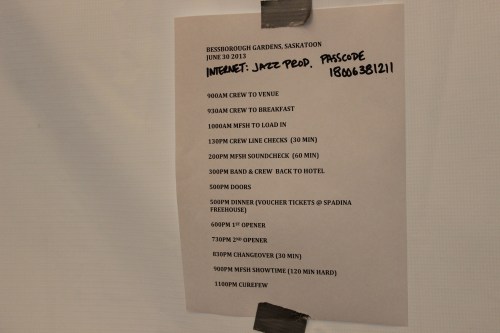 BESSBOROUGH GARDENS, SASKATOON
JUNE 30 2013
INTERNET: JAZZ PROD. PASSCODE
18006381211
900AM CREW TO VENUE
930AM CREW TO BREAKFAST
1000AM MFSH TO LOAD IN
130PM CREW LINE CHECKS (30 MIN)
200PM MFSH SOUNDCHECK (60 MIN)
300PM BAND & CREW BACK TO HOTEL
500PM DOORS
500PM DINNER (VOUCHER TICKETS @ SPADINA
FREEHOUSE)
600PM 1ST OPENER
730PM 2ND OPENER
830PM CHANGEOVER (30 MIN)
900PM MFSH SHOWTIME (120 MIN HARD)
1100PM CUREFEW